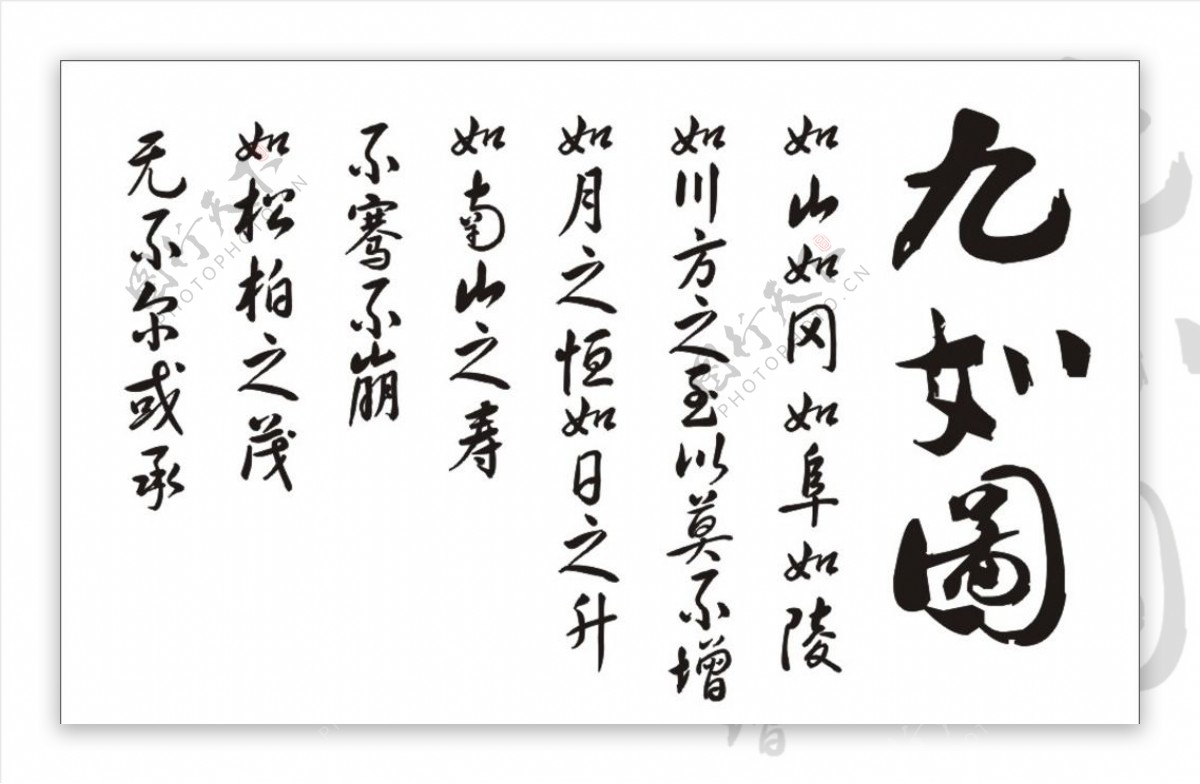 九如图
如山如冈如阜如陵
如川方之至以莫不增
如月之恒如日之升
如南山之寿
不骞不崩
如松柏之茂
无不尔或承
图行天下
PHOTOPHOTO.CN
图行天下
PHOTOPHOTO.CN